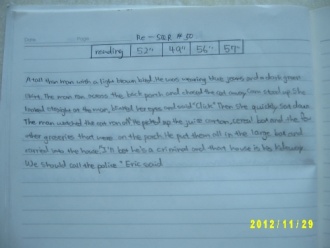 Re - SOER # 50
reading 52" 49" 56" 57"
A tall thin man with a light brown bird. He was wearing blue jeans and a dark green
shirt. The man ran across the back porch and chased the cat away. Sam stood up. She
looked straight at the man, blinked her eyes and said "Click". Then she quickly sat down.
The man watched the cat run off. He picked up the juice carton, cereal box and the few
other groceries that were on the porch. He put them all in the large box and
carried into the house. "I'll bet he's a criminal and that house is his hideaway.
We should call the police." Eric said.
2012/11/29